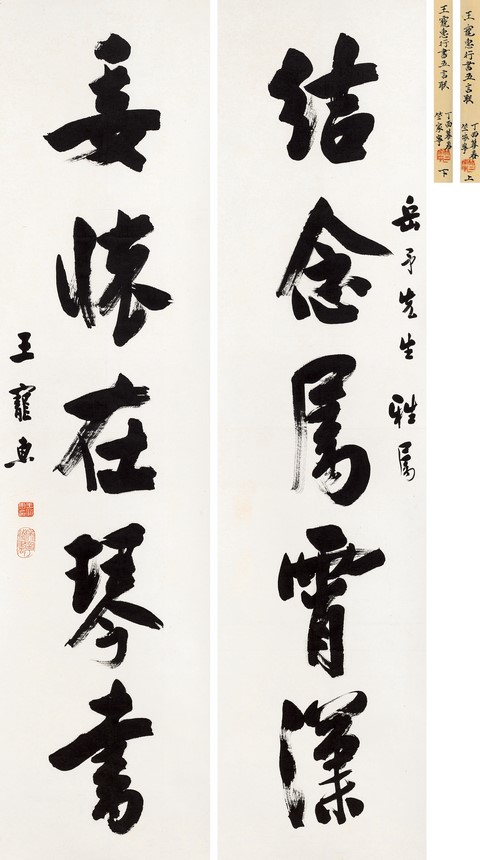 王寵惠行書五言联
丁酉暮春
竺家寧
上
王寵惠行書五言联
丁酉暮春
竺家寧
下
岳予先生 雅属
結念属霄漢
委懷在琴書
王寵惠